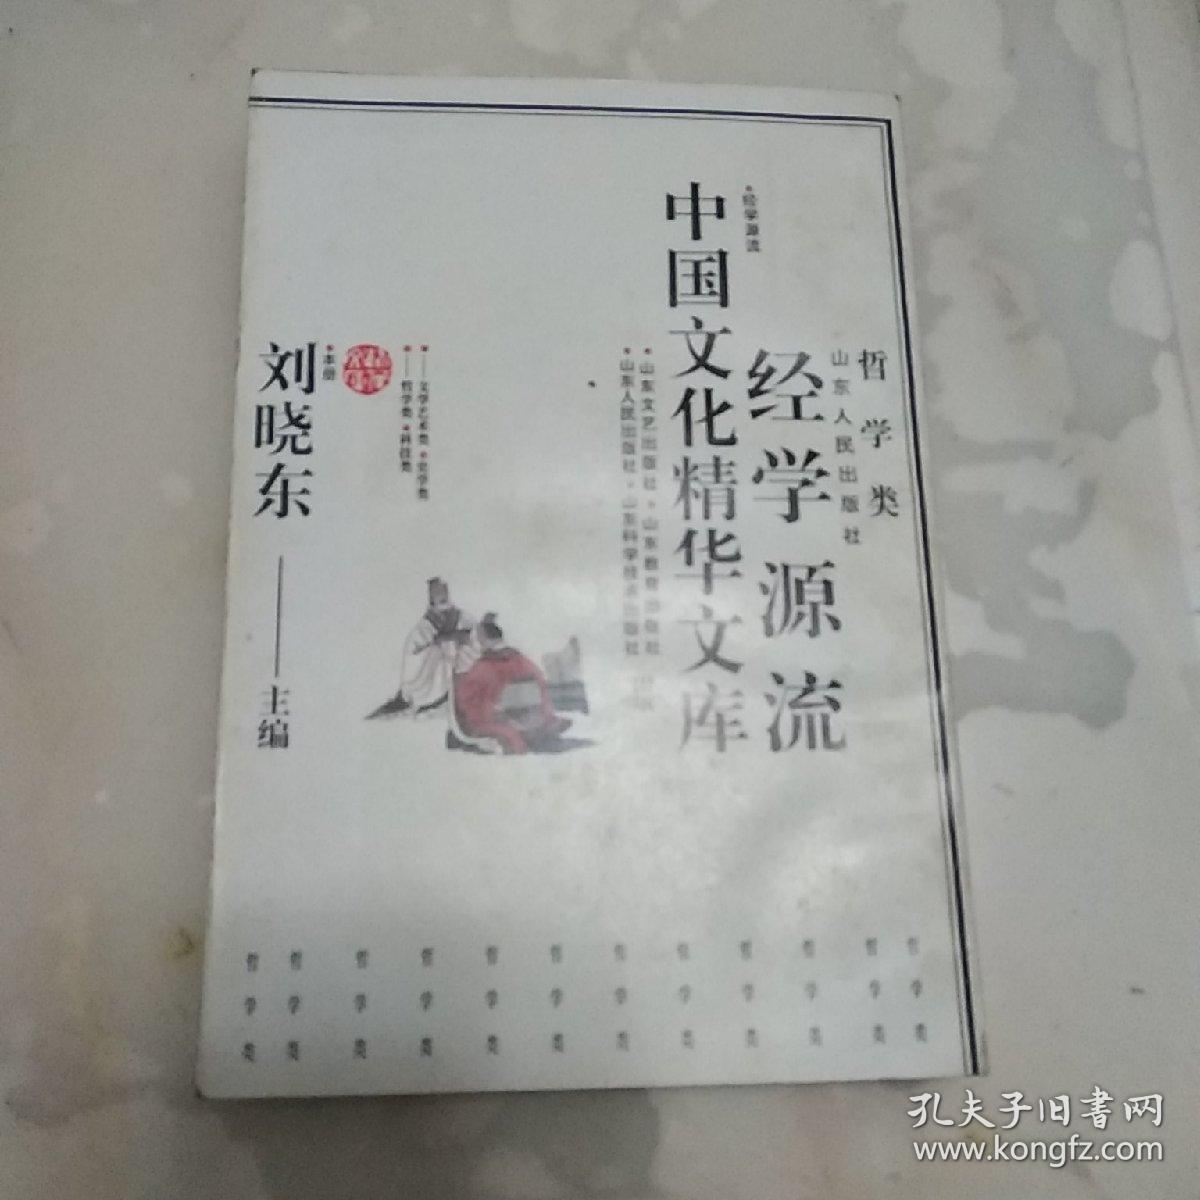 哲学类
山东人民出版社
经学源流
•经学源流
中国文化精华文库
•山东文艺出版社•山东教育出版社
•山东人民出版社•山东科学技术出版社
•——文学艺术类•史学类
•——哲学类•科技类
•本册
刘晓东——主编
哲学类
哲学类
哲学类
哲学类
哲学类
哲学类
哲学类
哲学类
哲学类
哲学类
哲学类
哲学类
孔夫子旧书网
www.kongfz.com